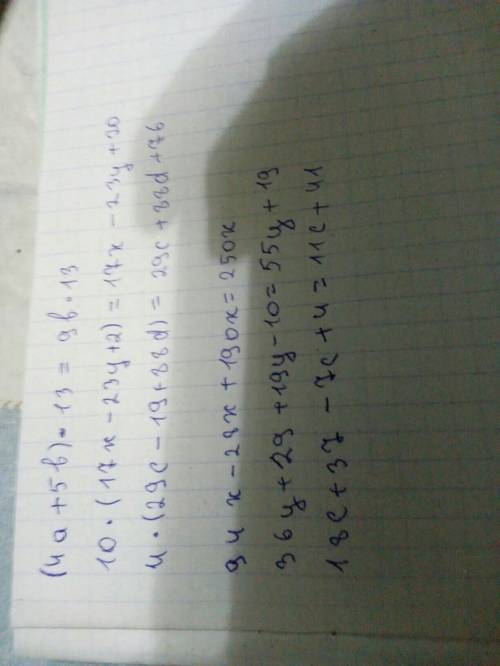 (4a + 5b) • 13 = 9b • 13
10 • (17x - 23y + 2) = 17x - 23y + 20
4 • (29c - 19 + 88d) = 29c + 88d + 76
94x - 29x + 190x = 250x
36y + 29 + 19y - 10 = 55y + 19
18c + 37 - 7c + 4 = 11c + 41